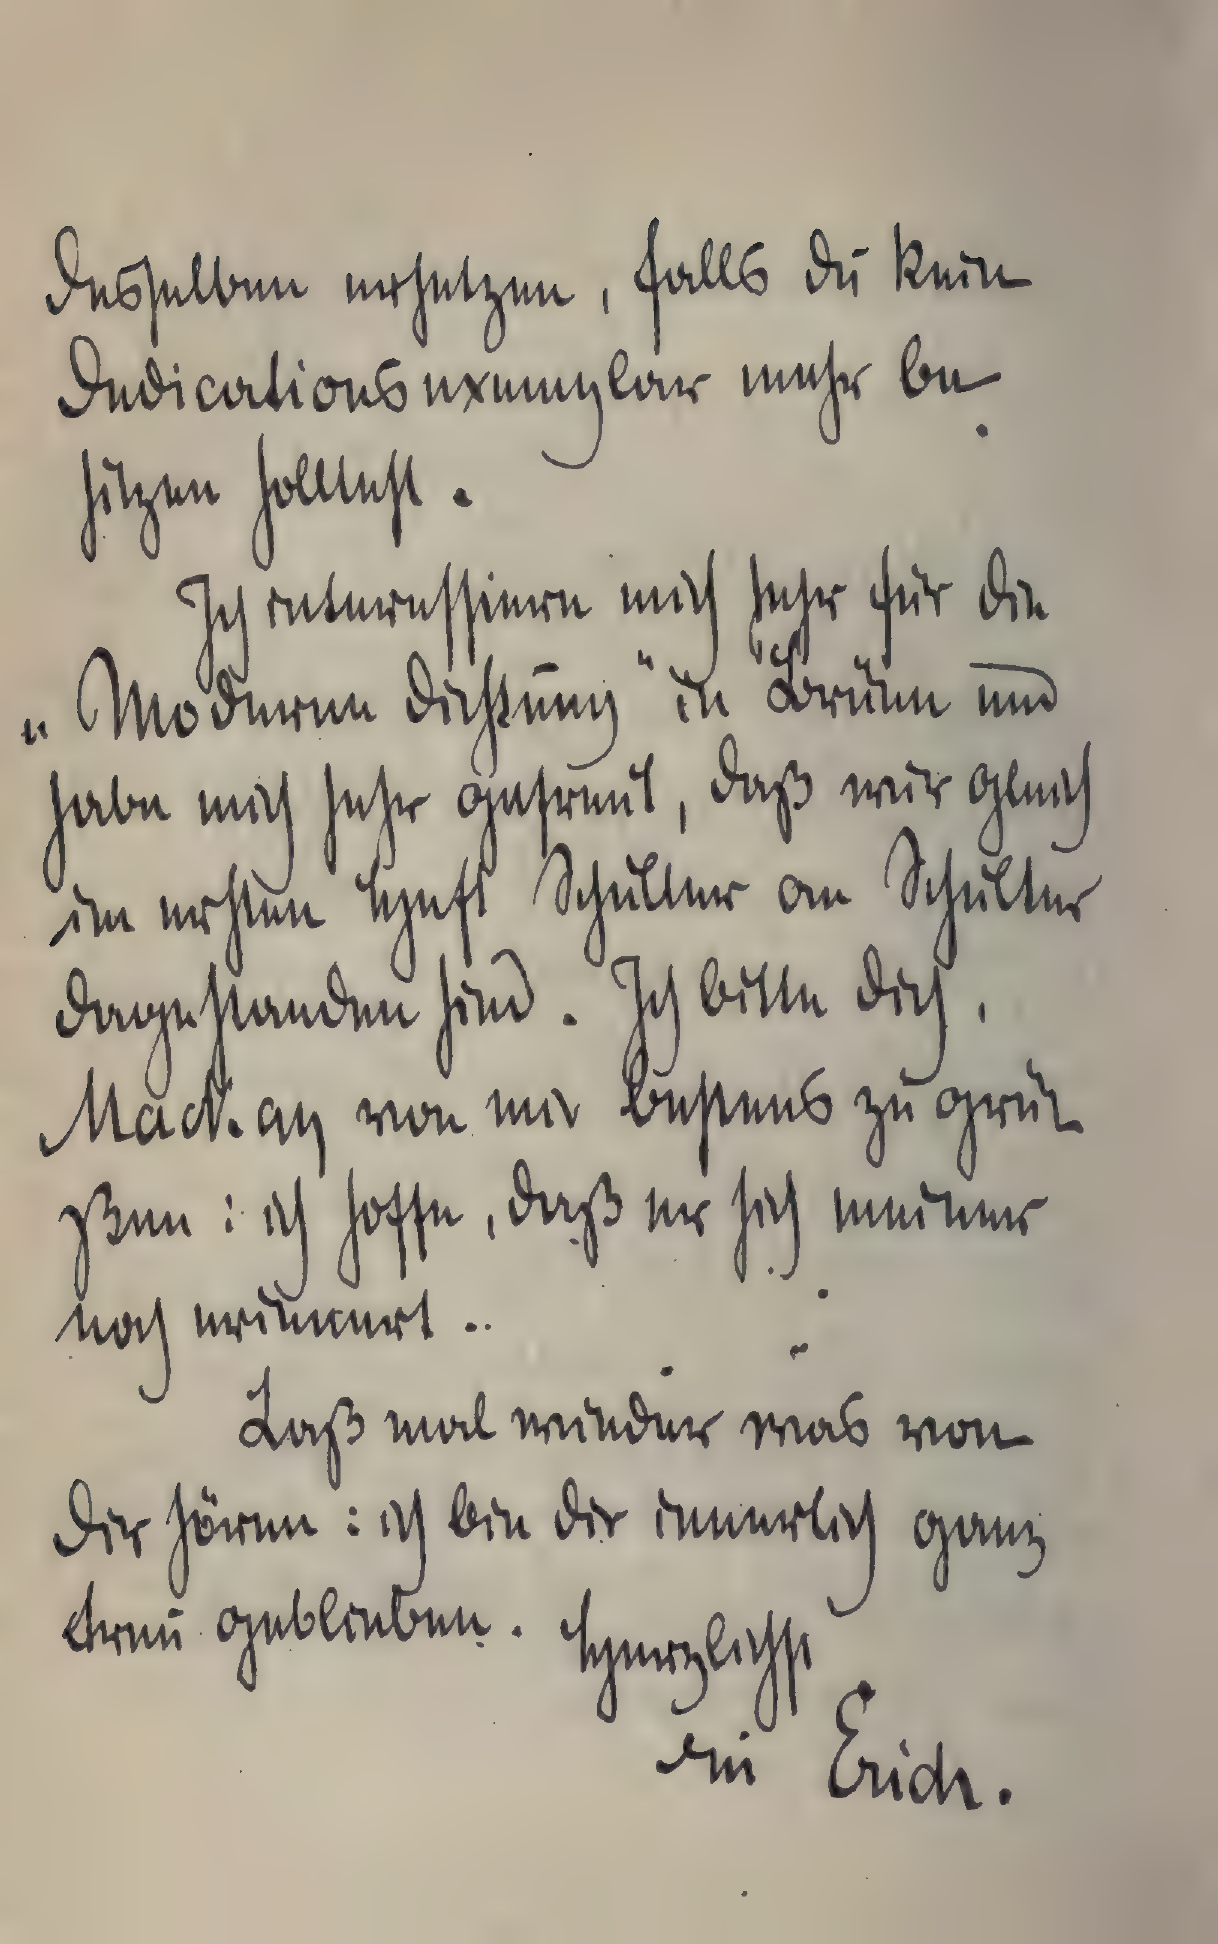 desselben ersetzen, falls du kein
Dedicationsexemplar mehr be-
sitzen solltest.
Ich interessiere mich sehr für die
„Moderne Dichtung" in Brünn und
habe mich sehr gefreut, daß wir gleich
im ersten Heft Schulter an Schulter
dagestanden sind. Ich bitte dich,
Mackay von mir bestens zu grü-
ßen: ich hoffe, daß er sich meiner
noch erinnert..
Laß mal wieder was von
dir hören: ich bin dir innerlich ganz
treu geblieben. Herzlichst
dein Erich.